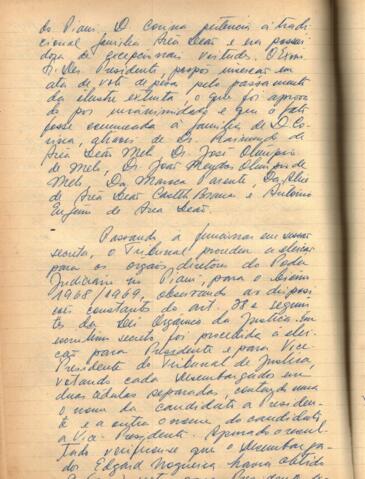 do Piauí. D. Corina pertencia à tradi-
cional família Area Leão e era possui
dora de excepcionais virtudes. O Exmo.
Sr. Des. Presidente, propos inserção em
ata de voto de pesar pelo passamento
da ilustre extinta, o que foi aprova
do por unanimidade e que o fato
fosse comunicado à família de D. Co-
rina, através de Dr. Raimundo de
Area Leão Melo, Dr. José Olímpio
de Melo, Dr. João Mendes Olímpio de
Melo, Da. Parente, Da.
de Area Leão Castelo Branco e Antônio
Eugenio de Area Leão.
Passando a funcionar em sessão
secreta, o Tribunal procedeu a eleição
para os orgãos diretores do Poder
Judiciário no Piauí, para o bienio
1968/1969, observando as disposi
ções constantes do art. 38 e seguin
tes da Lei Organica da Justiça. Em
escrutínio secreto foi procedida à elei-
ção para Presidente e para Vice-
Presidente do Tribunal de Justiça,
votando cada Desembargador em
duas cédulas separadas, contendo uma
o nome do candidato a Presiden-
te e a outra o nome do candidato
a Vice-Presidente. Apurado o resul
tado verificou-se que o Desembarga-
dor Edgard Nogueira havia obtido